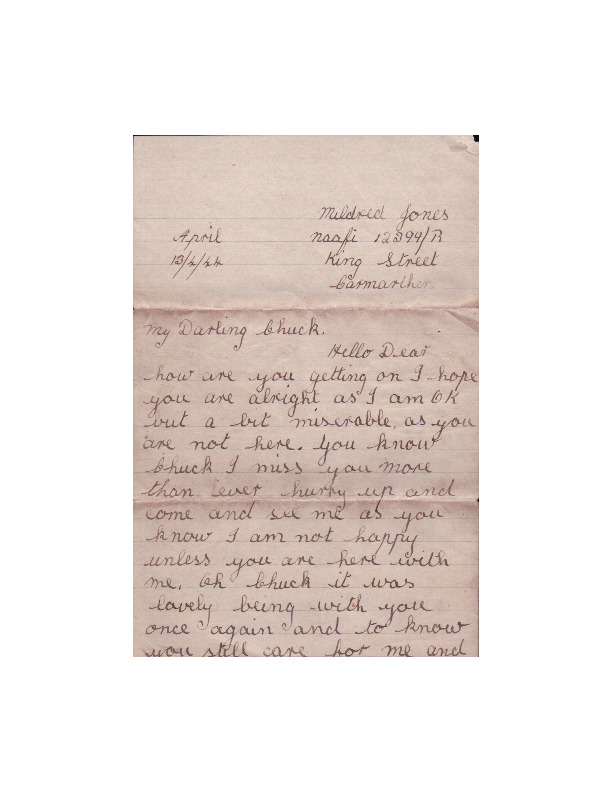 Mildred Jones
April naafi 12399/R
13/4/44 King Street
Carmarthen
My Darling Chuck.
Hello Dear
how are you getting on I hope
you are alright as I am OK
but a bit miserable, as you
are not here. You know
Chuck I miss you more
than ever hurry up and
come and see me as you
know I am not happy
unless you are here with
me. Oh Chuck it was
lovely being with you
once again and to know
you still care for me and